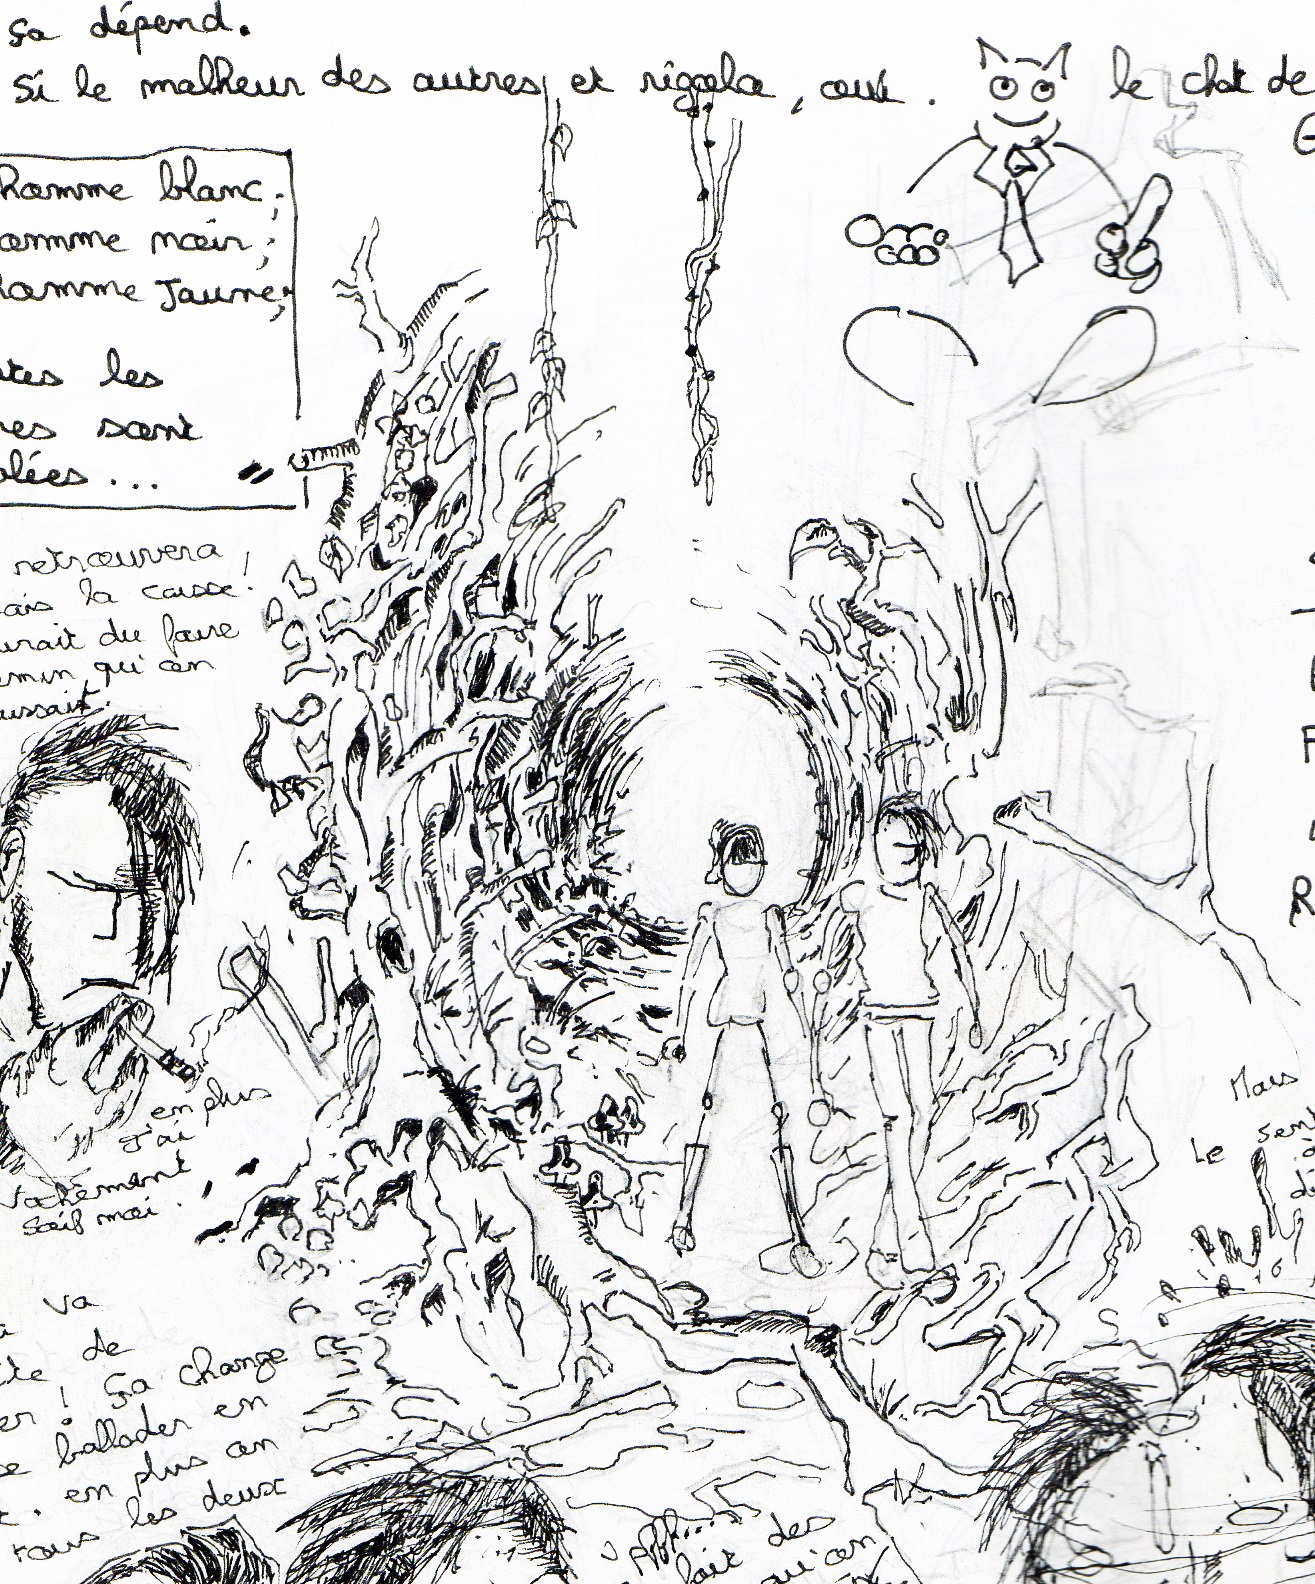 sa dépend.
Si le malheur des autres et rigolo, oui.
le chat de
G
homme blanc;
omme noir;
homme Jaune;
tes les
res sont
lées ...
retrouvera !
ais la causse!
urait du faire
emin qu'on
aussait.
F
R
en plus
J'ai
vachement
soif moi.
Mais
Le sem
va
de
er ! Sa change
se ballader en
en plus on
tous les deux
pfff....
fait des
qu'on